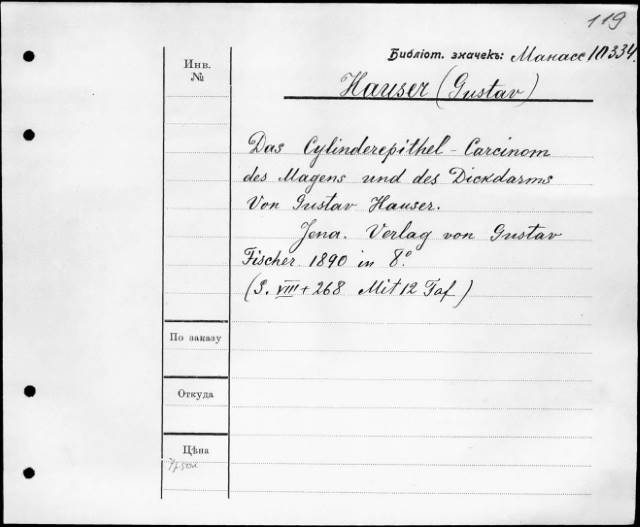 119
Библіот. значекъ: Манасс 10334.
Инв.
№
Hauser (Gustav)
Das Cylinderepithel-Carcinom
des Magens und des Dickdarms
Von Gustav Hauser.
Jena. Verlag von Gustav
Fischer 1890 in 8°.
(S. VIII + 268 Mit 12 Taf)
По заказу
Откуда
Цѣна